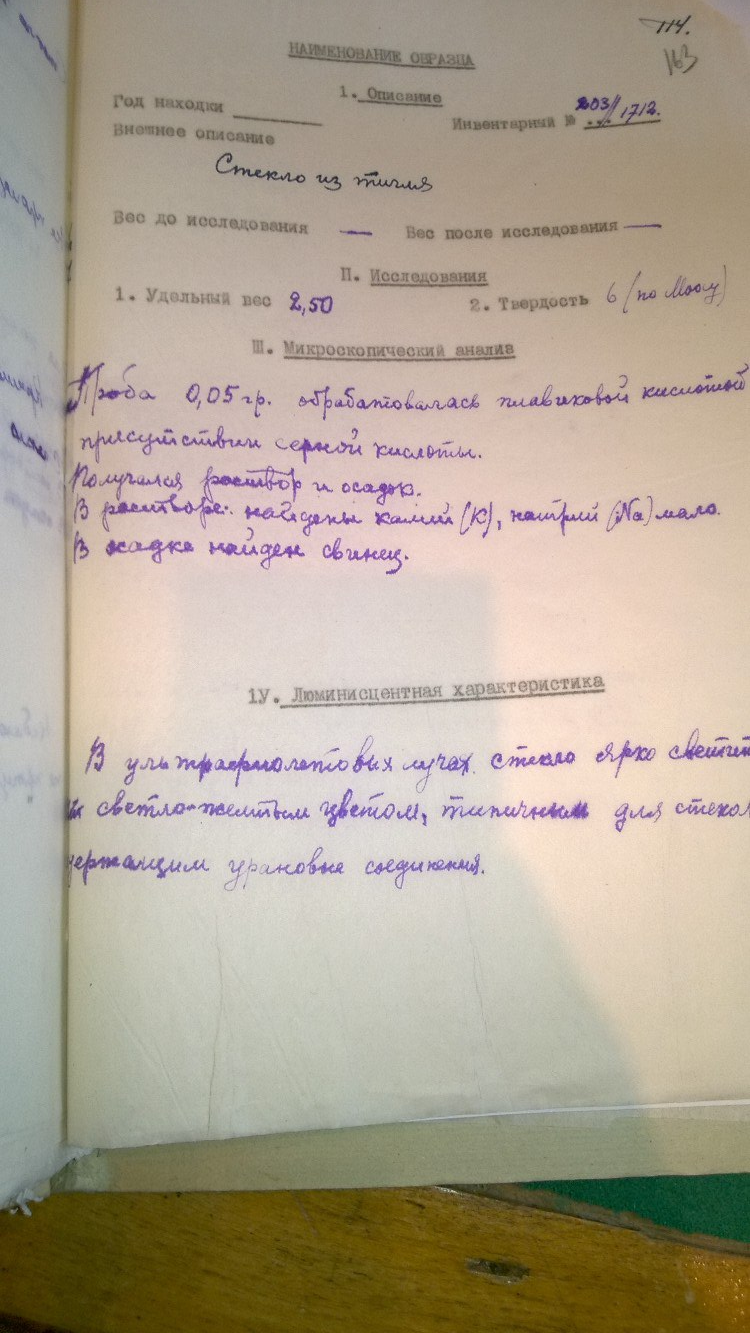 114.
163
НАИМЕНОВАНИЕ ОБРАЗЦА
1. Описание
Год находки
Инвентарный № 203//1712.
Внешнее описание
Стекло из тигля
Вес до исследования — Вес после исследования —
П. Исследования
1. Удельный вес 2,50 2. Твердость 6 (по Моосу)
Ш. Микроскопический анализ
Проба 0,05 гр. обрабатовалась плавиковой кислотой
присутствии серной кислоты.
Получился раствор и осадок.
В растворе: найдены калий (К), натрий (Na) мало.
В осадке найден свинец.
1У. Люминисцентная характеристика
В ультрафиолетовых лучах стекло ярко светит
светло-желтым цветом, типичным для стекол
держащим урановые соединения.